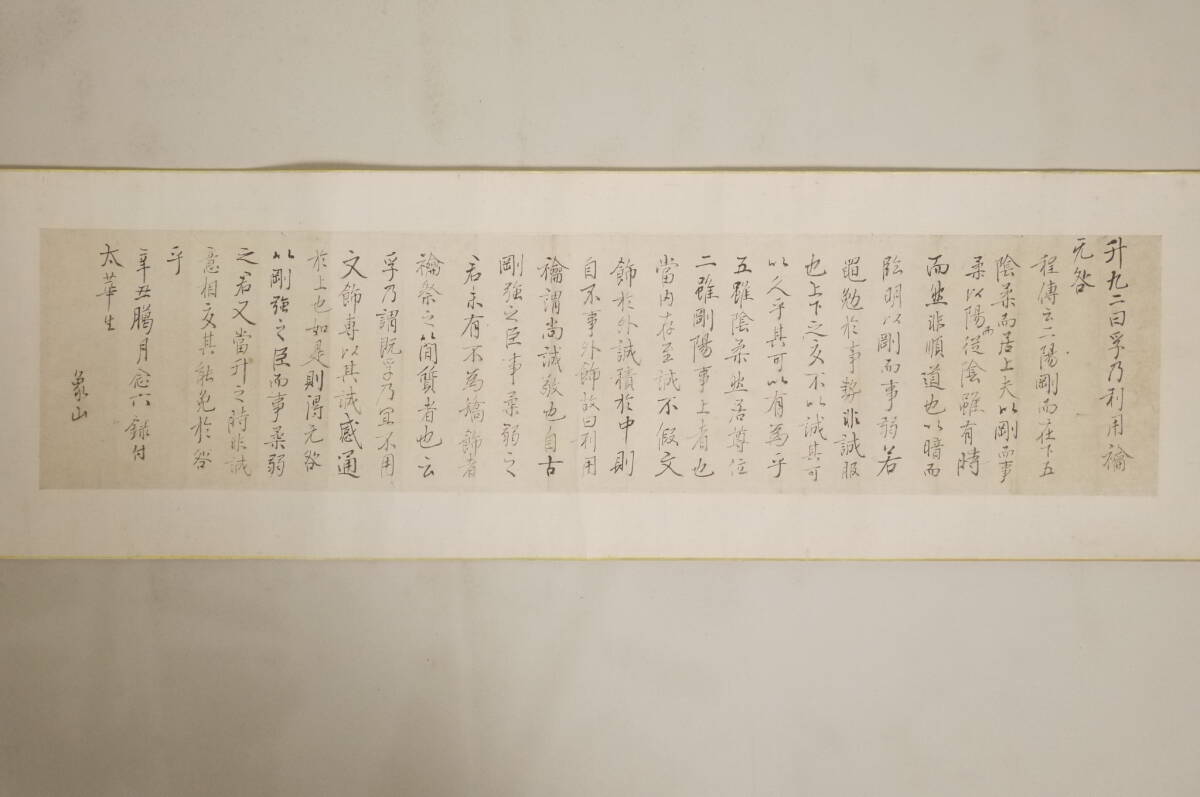 升九二曰孚乃利用禴
无咎
程傳云二陽剛而在下五
陰柔而居上夫以剛而事
柔以陽而從陰雖有時
而然非順道也以暗而
臨明以剛而事弱若
黽勉於事勢非誠服
也上下之交不以誠其可
以久乎其可以有為乎
五雖陰柔然居尊位
二雖剛陽事上者也
當內存至誠不假文
飾於外誠積於中則
自不事外飾故曰利用
禴謂尚誠敬也自古
剛強之臣事柔弱之
君未有不為矯飾者
禴祭之簡質者也云
孚乃謂既孚乃宜不用
文飾專以其誠感通
於上也如是則得无咎
以剛強之臣而事柔弱
之君又當升之時非誠
意相交其能免於咎
乎
辛丑臘月念六錄付
太華生
象山